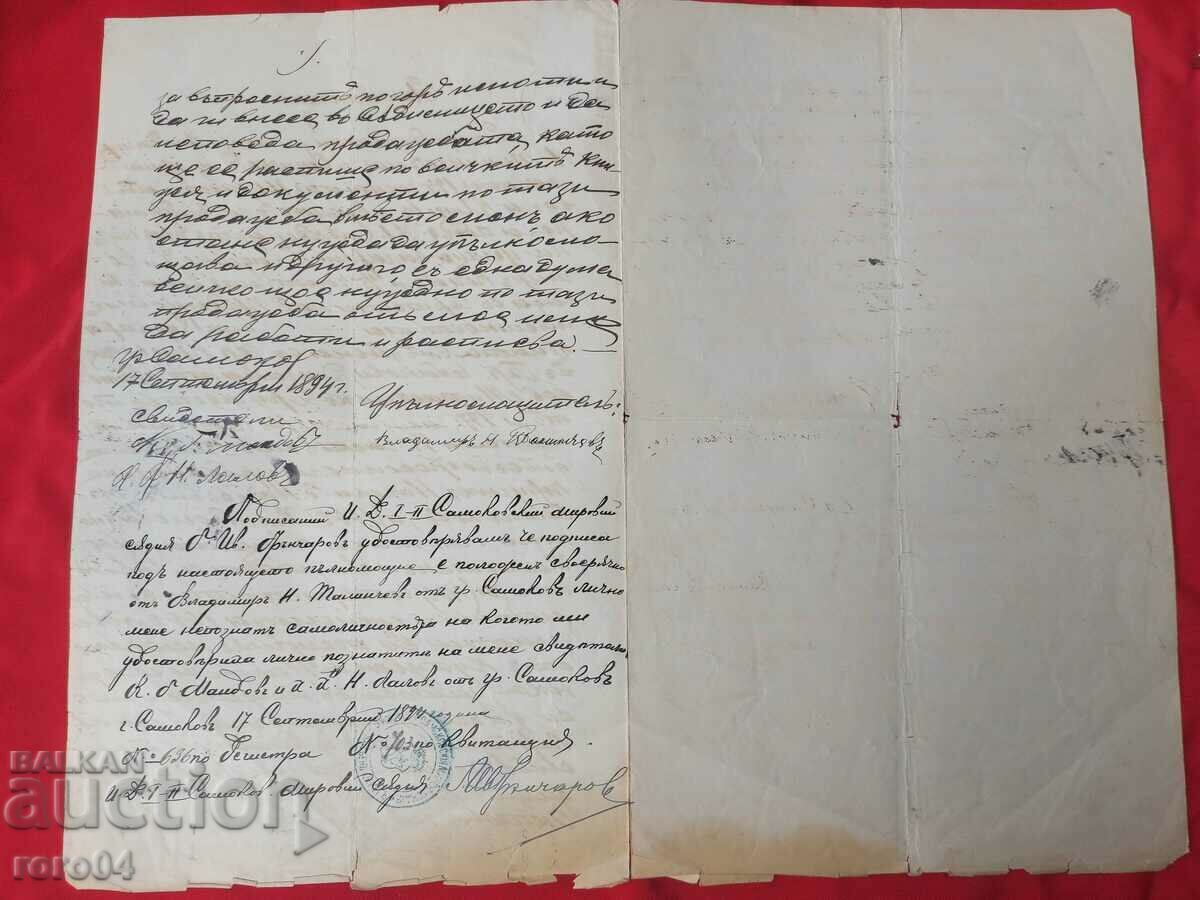 за въпроснитѣ погорѣ имоти и
да ги внесе въ Сѫдилището и да
исповѣда продажбата, като
ще се распише по всичкитѣ кни
жа и документи по тази
продажба вмѣсто менъ ако
стане нужда да упълномо
щава и другиго съ една дума
всичко що е нужно по тази
продажба отъ мое име
да работи и расписва. —
гр. Самоковъ
17 Септемврий 1894 г.
Упълномощитель:
свидетели
Владимиръ Н.
К. Н. Лаловъ
Подписаний И. Д. I–II Самоковский мировий
сѫдия Г. Ив. Грънчаровъ удостовѣрявамъ че подписа
подъ настоящето пълномощие е положенъ своерѫчно
отъ Владимиръ Н. отъ гр. Самоковъ лично
мене непознатъ самоличностьта на когото ми
удостовѣриха лично познатитѣ на мене свидѣтели
К. Г. и Н. Лаловъ отъ гр. Самоковъ
г. Самоковъ 17 Септемврий 1894 година
№ 636 по Регистра № 703 по Квитанция
И. Д. I–II Самоков. Мировий Сѫдия Ив. Грънчаровъ
BALKAN
auction
roro04